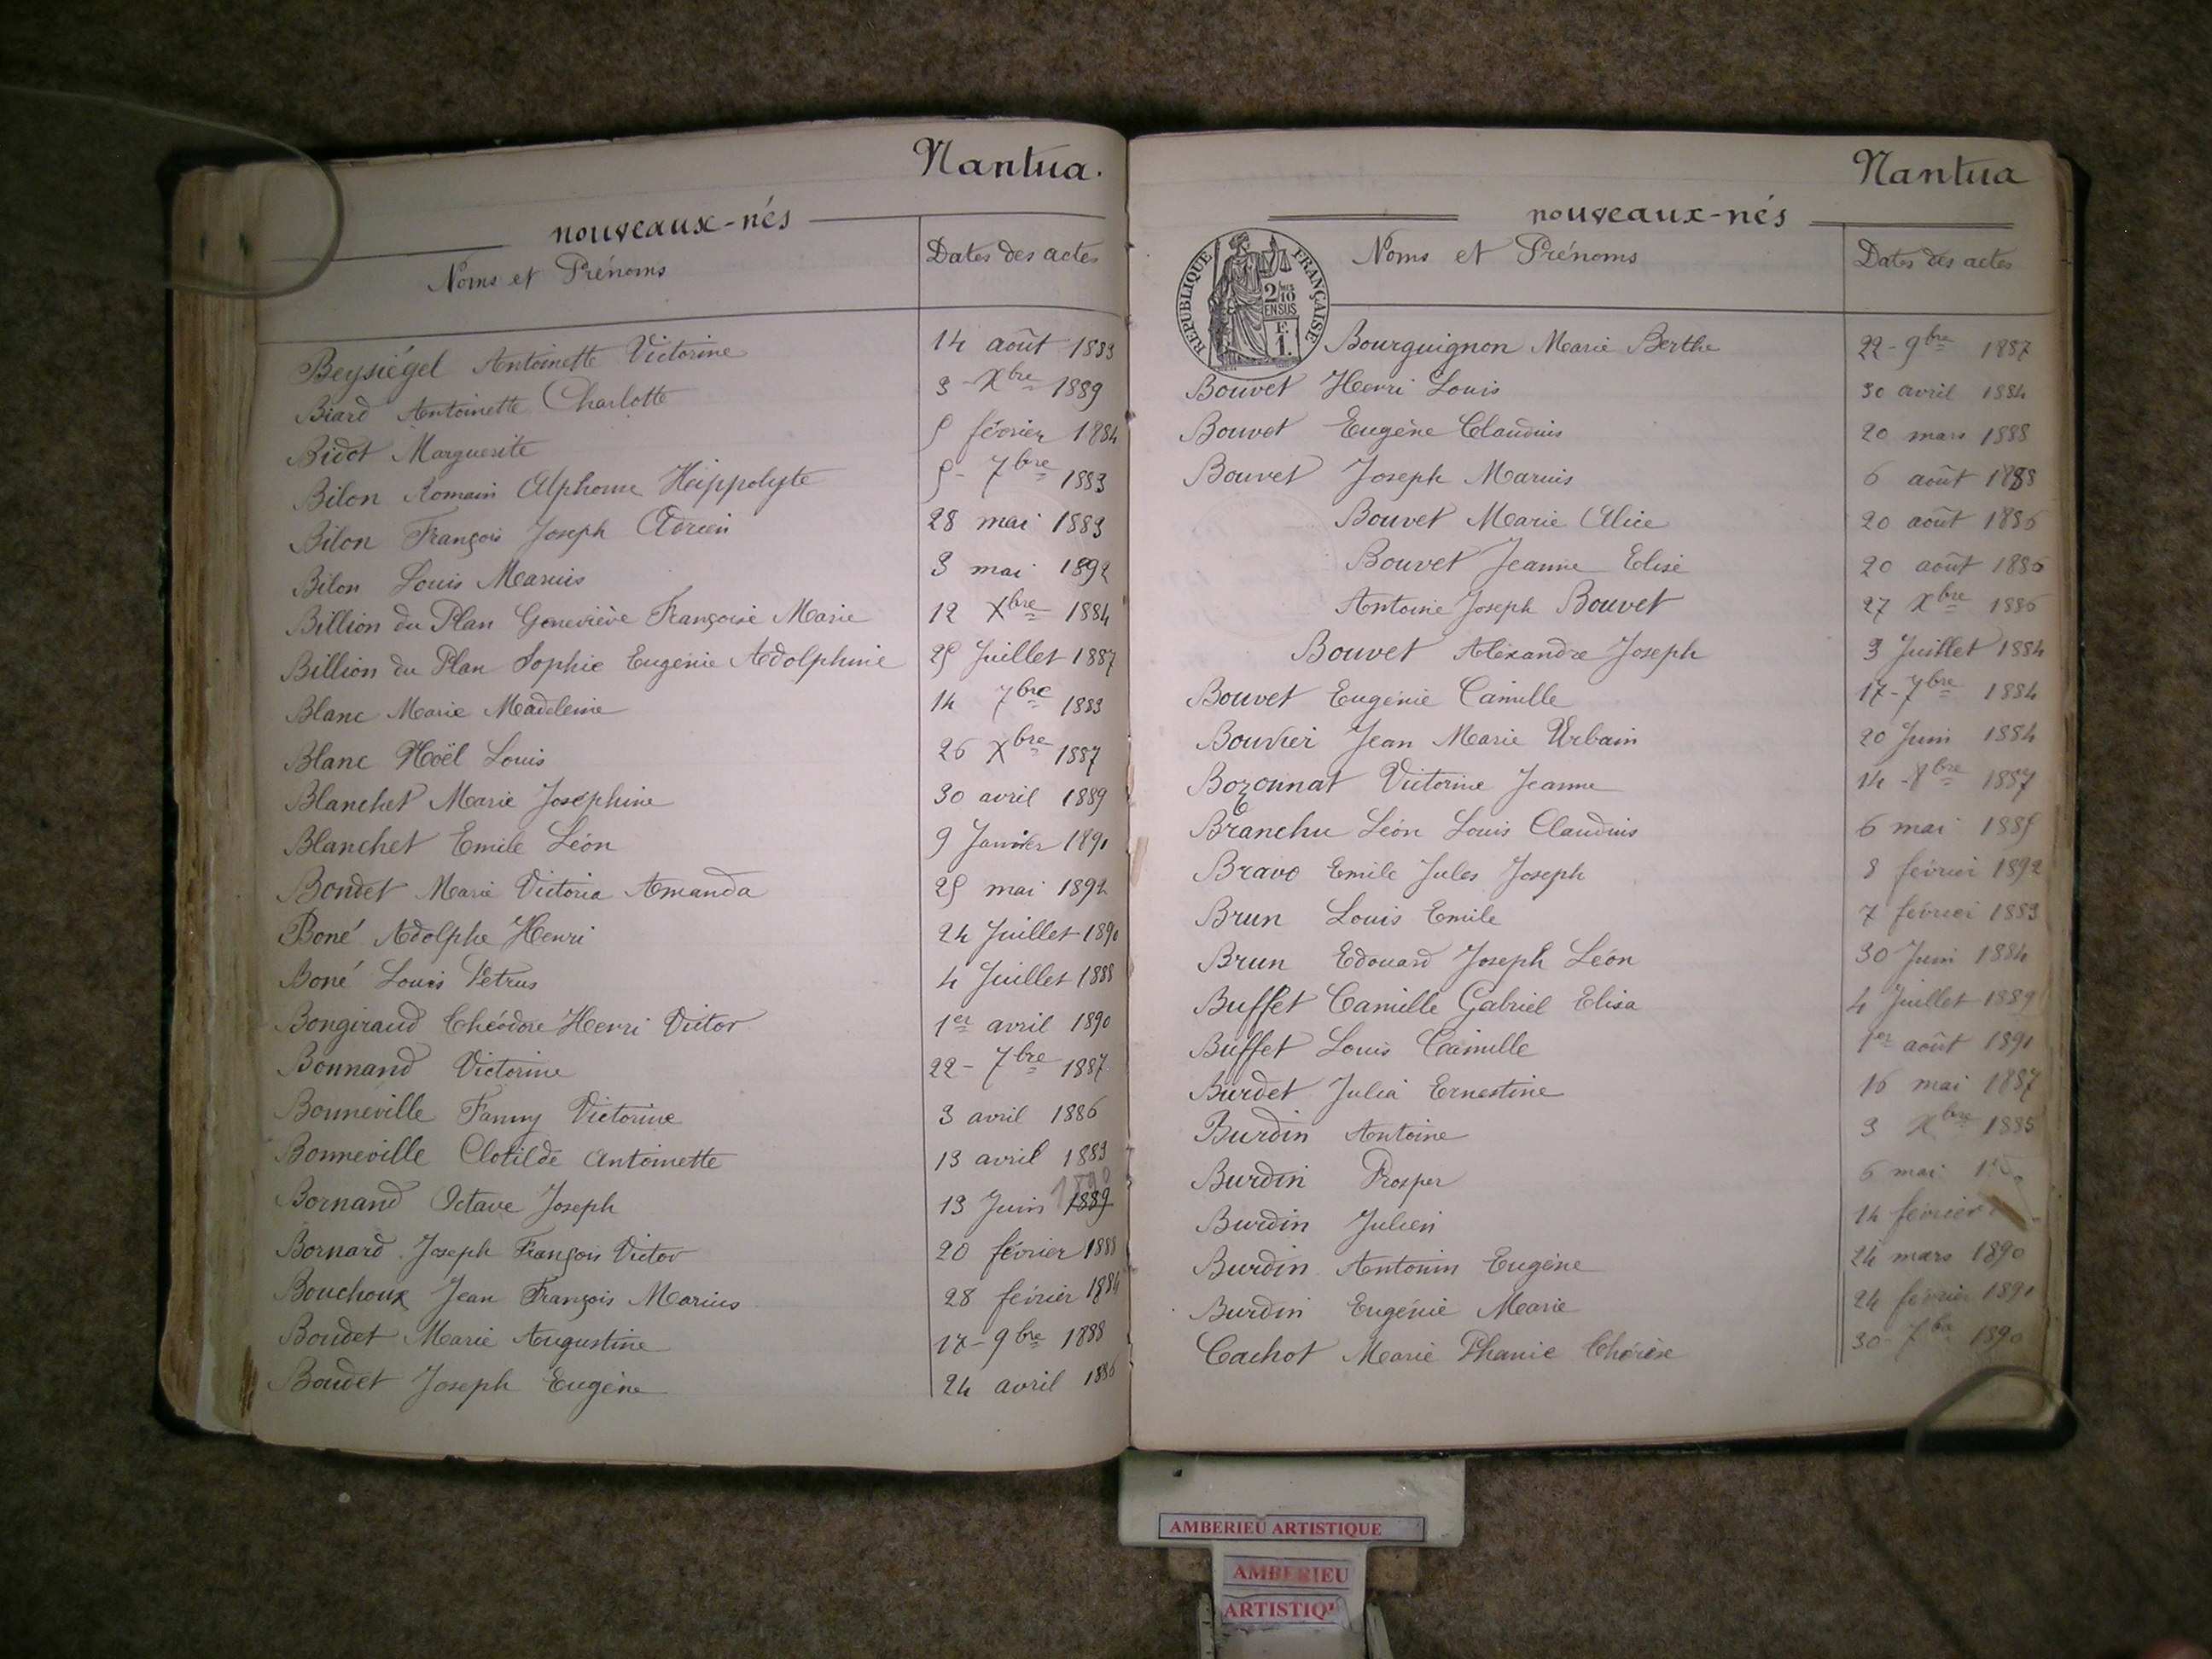 Nantua.
nouveaux-nés
Noms et Prénoms Dates des actes
Beysiégel Antoinette Victorine 14 août 1883
Biard Antoinette Charlotte 3 - Xbre 1889
Bidot Marguerite 5 février 1884
Bilon Romain Alphonse Hippolyte 5 - 7bre 1883
Bilon François Joseph Adrien 28 mai 1883
Bilon Louis Marius 3 mai 1892
Billion du Plan Geneviève Françoise Marie 12 Xbre 1884
Billion du Plan Sophie Eugénie Adolphine 25 Juillet 1887
Blanc Marie Madeleine 14 7bre 1883
Blanc Noël Louis 26 Xbre 1887
Blanchet Marie Joséphine 30 avril 1889
Blanchet Emile Léon 9 Janvier 1891
Bondet Marie Victoria Amanda 25 mai 1892
Boné Adolphe Henri 24 Juillet 1890
Boné Louis Petrus 4 Juillet 1888
Bongiraud Théodore Henri Victor 1er avril 1890
Bonnand Victorine 22 - 7bre 1887
Bonneville Fanny Victorine 3 avril 1886
Bonneville Clotilde Antoinette 13 avril 1883
1890
Bornand Octave Joseph 13 Juin 1889
Bornard Joseph François Victor 20 février 1888
Bouchoux Jean François Marius 28 février 1884
Boudet Marie Augustine 17 - 9bre 1888
Boudet Joseph Eugène 24 avril 1886
Nantua
nouveaux-nés
Noms et Prénoms Dates des actes
RÉPUBLIQUE FRANÇAISE
2/10
EN SUS
F.
1.
Bourguignon Marie Berthe 22 - 9bre 1887
Bouvet Henri Louis 30 avril 1884
Bouvet Eugène Claudius 20 mars 1888
Bouvet Joseph Marius 6 août 1888
Bouvet Marie Alice 20 août 1886
Bouvet Jeanne Elise 20 août 1886
Antoine Joseph Bouvet 27 Xbre 1886
Bouvet Alexandre Joseph 3 Juillet 1884
Bouvet Eugénie Camille 17 - 7bre 1884
Bouvier Jean Marie Urbain 20 Juin 1884
Bozonnat Victorine Jeanne 14 - 8bre 1887
Branchu Léon Louis Claudius 6 mai 1885
Bravo Emile Jules Joseph 8 février 1892
Brun Louis Emile 7 février 1883
Brun Edouard Joseph Léon 30 Juin 1884
Buffet Camille Gabriel Elisa 4 Juillet 1889
Buffet Louis Camille 1er août 1891
Burdet Julia Ernestine 16 mai 1887
Burdin Antoine 3 Xbre 1885
Burdin Prosper 6 mai
Burdin Julien 14 février
Burdin Antonin Eugène 24 mars 1890
Burdin Eugénie Marie 24 février 1891
Cachot Marie Phanie Thérèse 30 - 7bre 1890
AMBERIEU ARTISTIQUE
AMBERIEU
ARTISTIQ